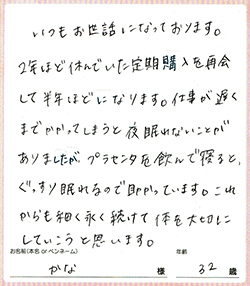 いつもお世話になっております。
2年ほど休んでいた定期購入を再会
して半年ほどになります。仕事が遅く
までかかってしまうと夜眠れないことが
ありましたが、プラセンタを飲んで寝ると、
ぐっすり眠れるので助かっています。これ
からも細く永く続けて体を大切に
していこうと思います。
お名前(本名 or ペンネーム) 年齢
かな 様 32 歳